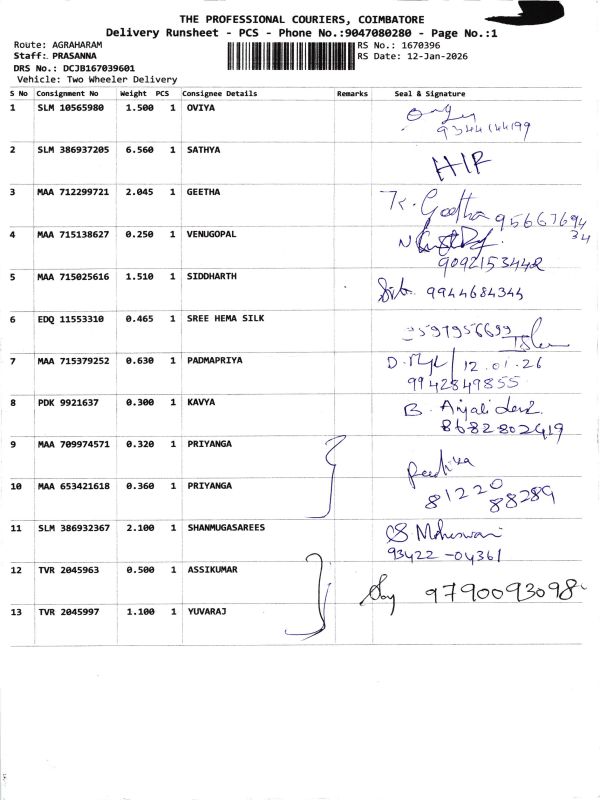 THE PROFESSIONAL COURIERS, COIMBATORE
Delivery Runsheet - PCS - Phone No.:9047080280 - Page No.:1
Route: AGRAHARAM
RS No.: 1670396
Staff: PRASANNA
RS Date: 12-Jan-2026
DRS No.: DCJB167039601
Vehicle: Two Wheeler Delivery
S No Consignment No Weight PCS Consignee Details Remarks Seal & Signature
1 SLM 10565980 1.500 1 OVIYA
2 SLM 386937205 6.560 1 SATHYA
3 MAA 712299721 2.045 1 GEETHA K. Geetha 95667694
34
4 MAA 715138627 0.250 1 VENUGOPAL
9092153442
5 MAA 715025616 1.510 1 SIDDHARTH 9944684344
6 EDQ 11553310 0.465 1 SREE HEMA SILK
7 MAA 715379252 0.630 1 PADMAPRIYA 12.01.26
9942849855
8 PDK 9921637 0.300 1 KAVYA B. Anjali
8682802419
9 MAA 709974571 0.320 1 PRIYANGA
10 MAA 653421618 0.360 1 PRIYANGA 81220
88289
11 SLM 386932367 2.100 1 SHANMUGASREES S Maheswari
93422-04361
12 TVR 2045963 0.500 1 ASSIKUMAR 9790093098
13 TVR 2045997 1.100 1 YUVARAJ